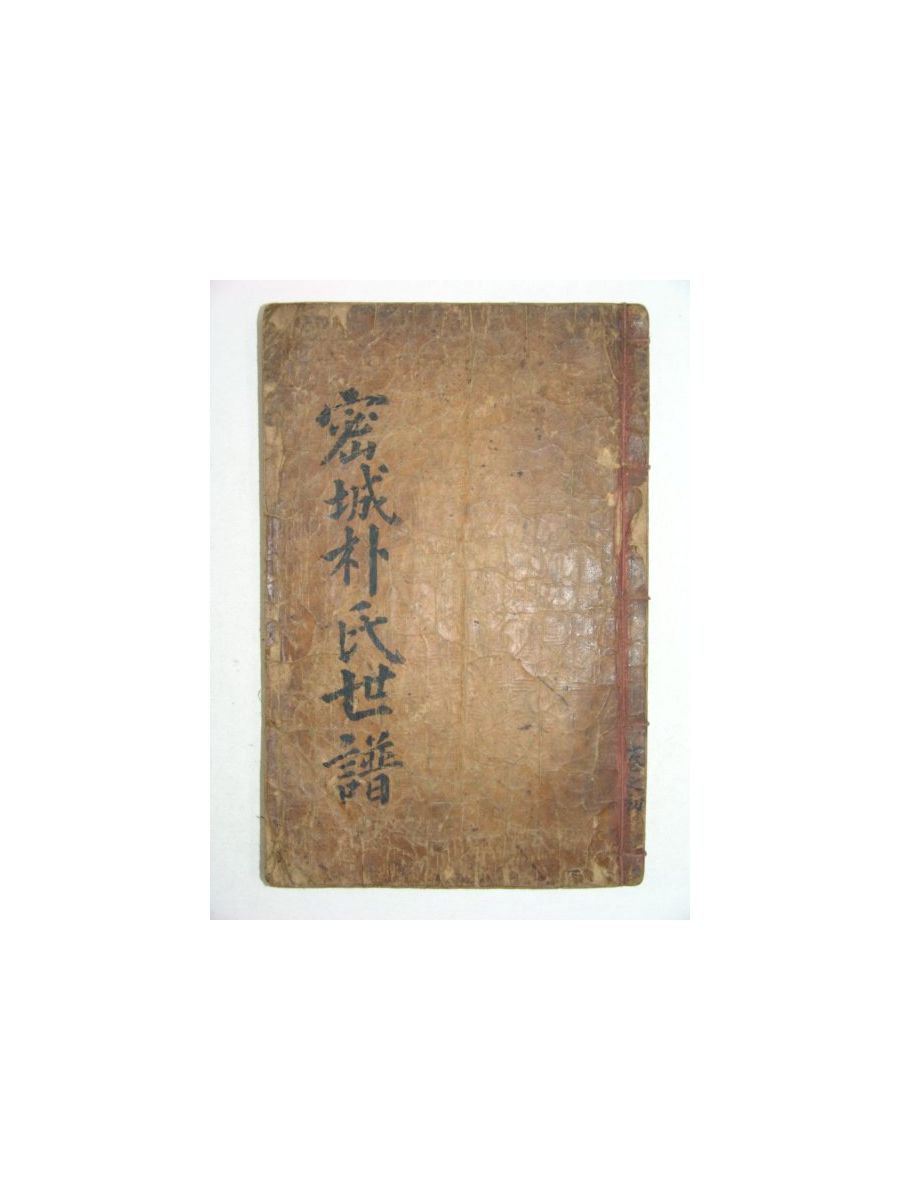 密城朴氏世譜